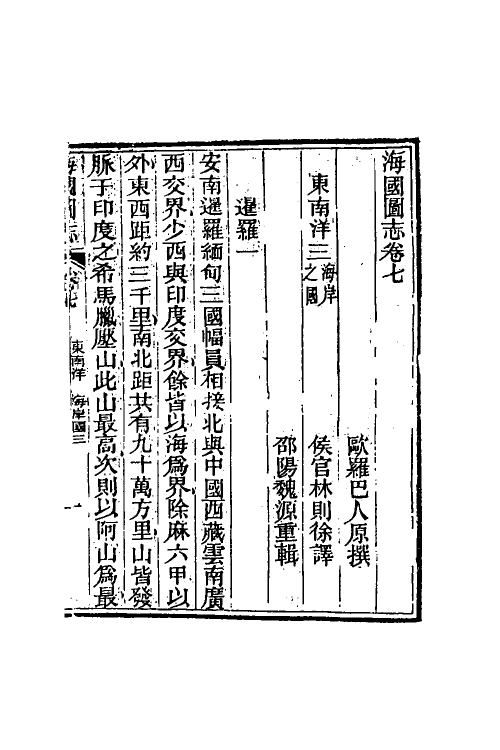 海國圖志卷七
歐羅巴人原撰
東南洋三海岸之國
侯官林則徐譯
邵陽魏源重輯
暹羅一
安南暹羅緬甸三國幅員相接北與中國西藏雲南廣
西交界少西與印度交界餘皆以海爲界除麻六甲以
外東西距約三千里南北距共有九十萬方里山皆發
脈于印度之希馬臘壓山此山最高次則以阿山爲最
海國圖志 卷七 東南洋 海岸國三 一